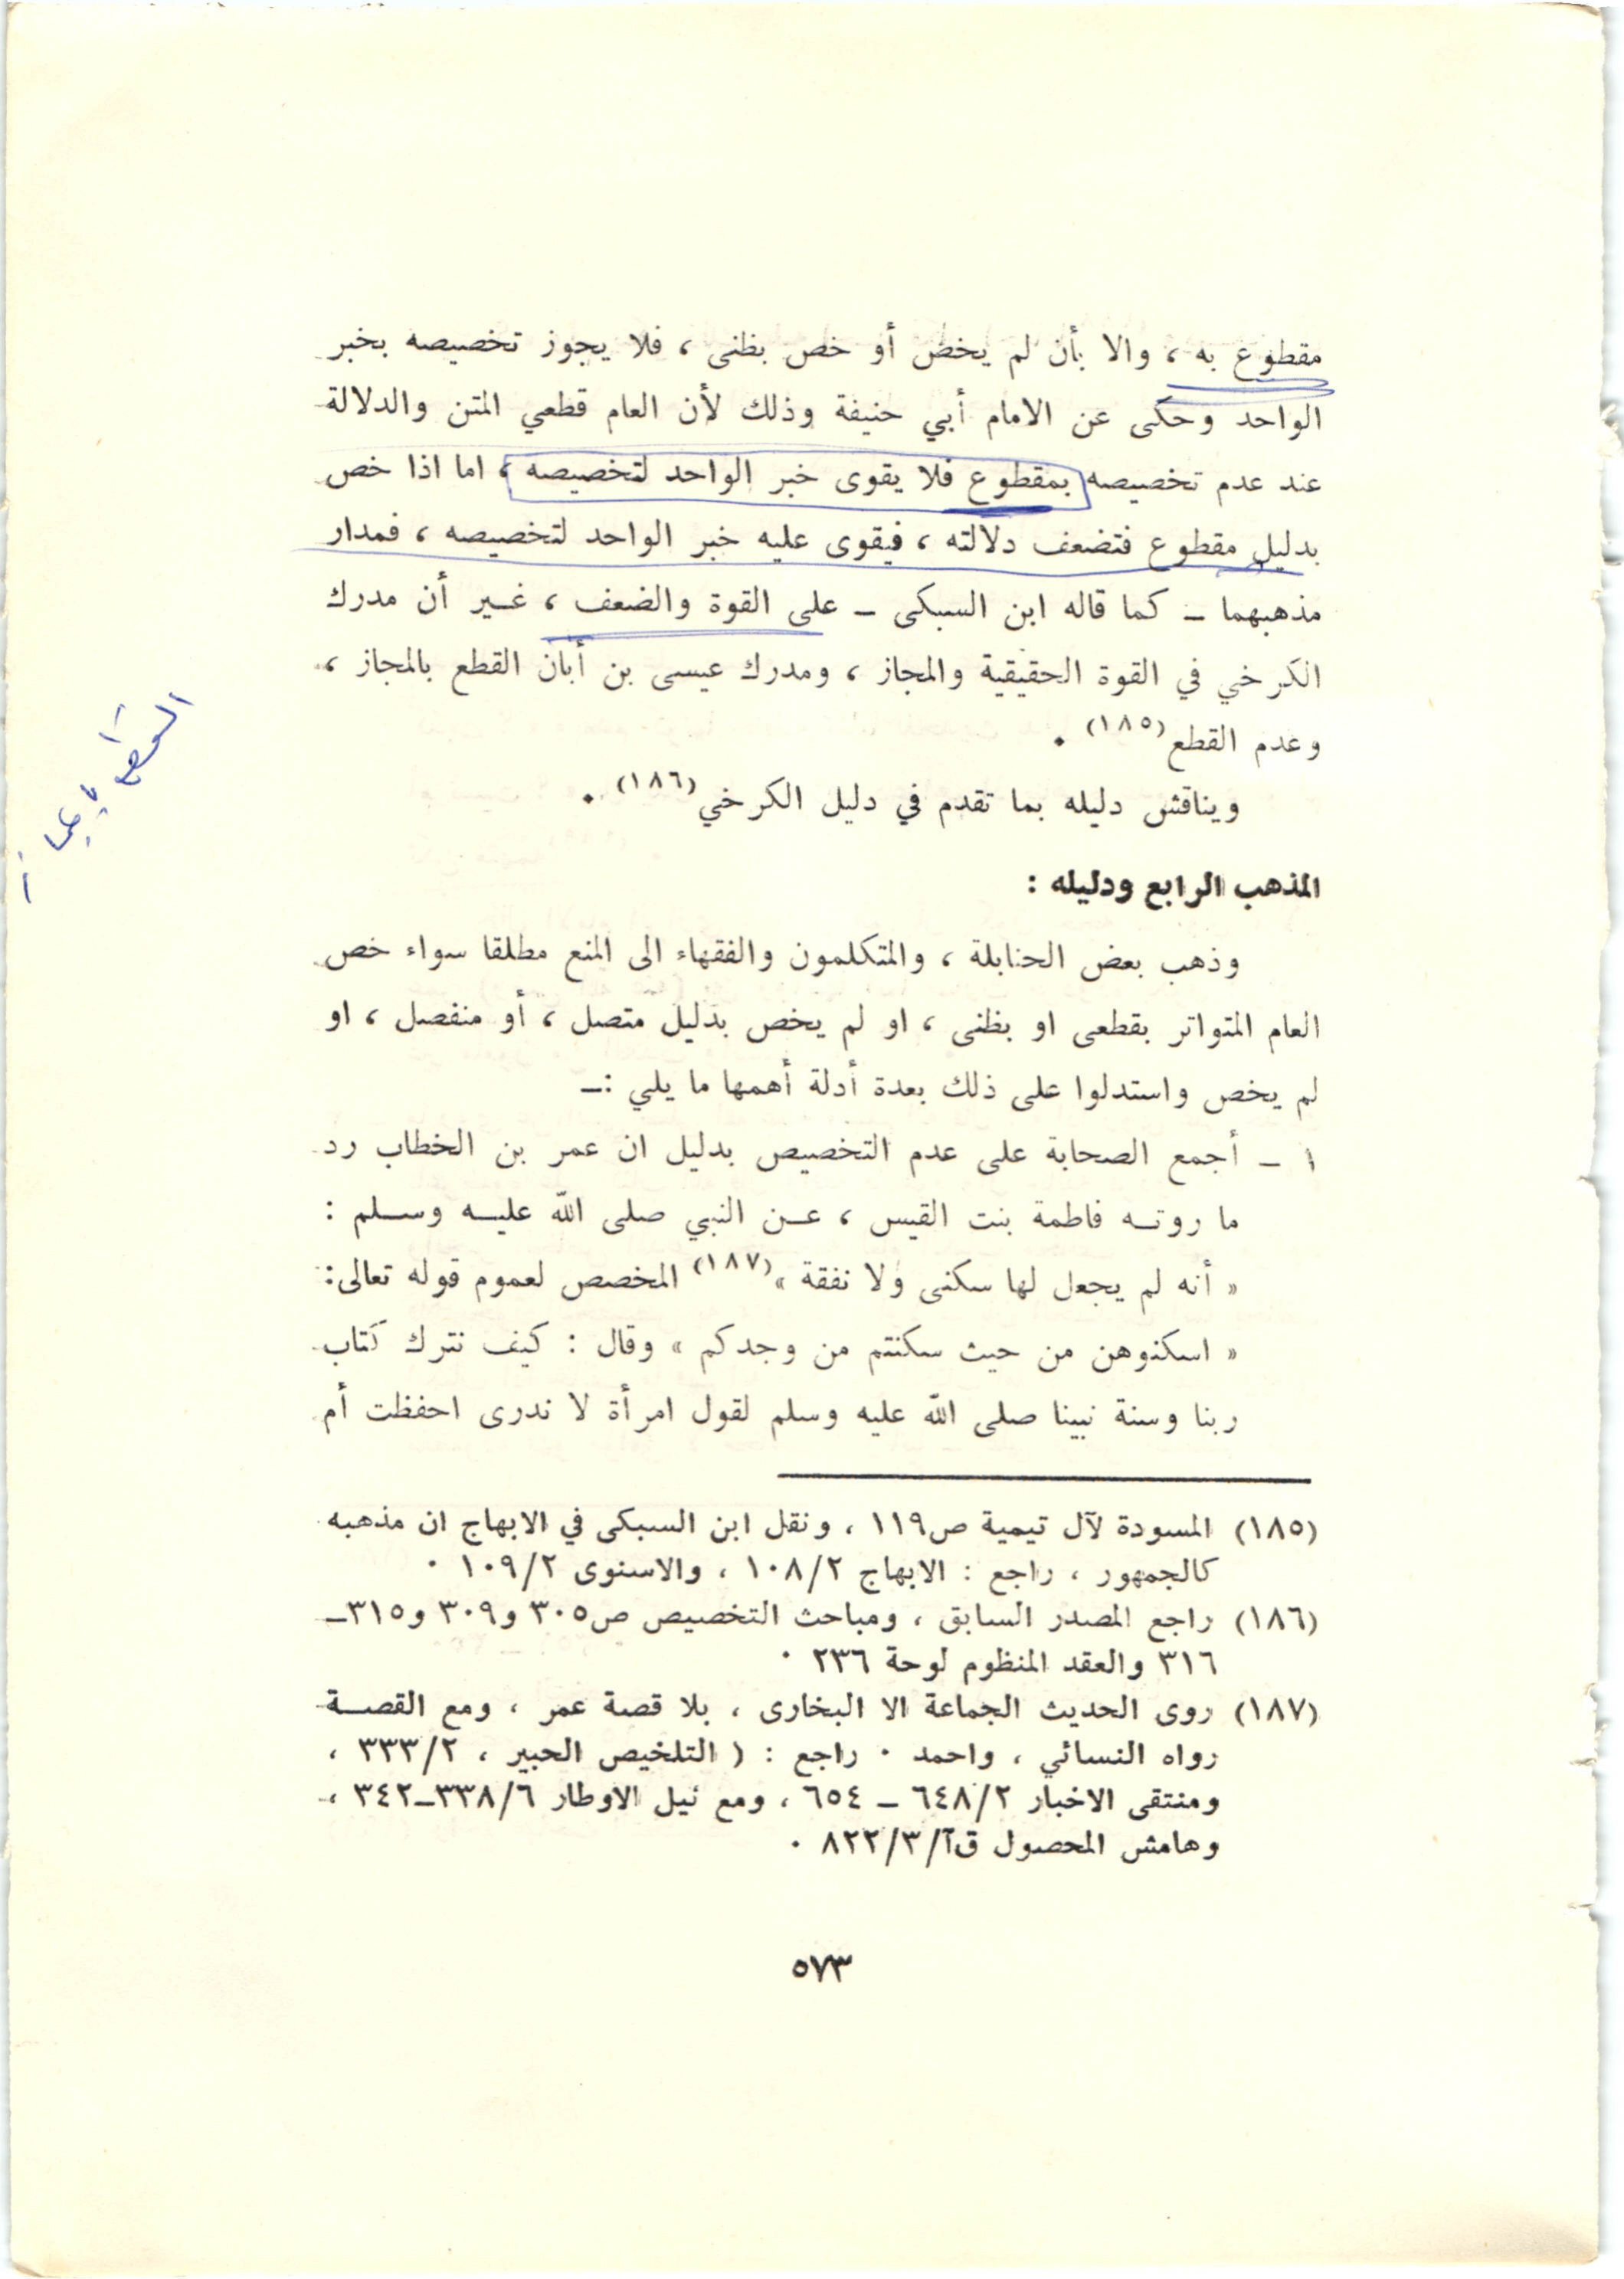 مقطوع به ، والا بأن لم يخض أو خص بظنى ، فلا يجوز تخصيصه بخبر
الواحد وحكى عن الامام أبي حنيفة وذلك لأن العام قطعي المتن والدلالة
عند عدم تخصيصه بمقطوع فلا يقوى خبر الواحد لتخصيصه ، اما اذا خص
بدليل مقطوع فتضعف دلالته ، فيقوى عليه خبر الواحد لتخصيصه ، فمدار
مذهبهما ــ كما قاله ابن السبكى ــ على القوة والضعف ، غـير أن مدرك
الكرخي في القوة الحقيقية والمجاز ، ومدرك عيسى بن أبان القطع بالمجاز ،
وعدم القطع (١٨٥) .
ويناقش دليله بما تقدم في دليل الكرخي (١٨٦) .
المذهب الرابع ودليله :
وذهب بعض الحنابلة ، والمتكلمون والفقهاء الى المنع مطلقا سواء خص
العام المتواتر بقطعى او بظنى ، او لم يخص بدليل متصل ، أو منفصل ، او
لم يخص واستدلوا على ذلك بعدة أدلة أهمها ما يلي :ــ
١ ــ أجمع الصحابة على عدم التخصيص بدليل ان عمر بن الخطاب رد
ما روتـه فاطمة بنت القيس ، عـن النبي صلى الله عليـه وسـلم :
« أنه لم يجعل لها سكنى ولا نفقة » (١٨٧) المخصص لعموم قوله تعالى:
« اسكنوهن من حيث سكنتم من وجدكم » وقال : كيف نترك كتاب
ربنا وسنة نبينا صلى الله عليه وسلم لقول امرأة لا ندرى احفظت أم
(١٨٥) المسودة لآل تيمية ص١١٩ ، ونقل ابن السبكى في الابهاج ان مذهبه
كالجمهور ، راجع : الابهاج ١٠٨/٢ ، والاسنوى ١٠٩/٢ .
(١٨٦) راجع المصدر السابق ، ومباحث التخصيص ص٣٠٥ و٣٠٩ و٣١٥ــ
٣١٦ والعقد المنظوم لوحة ٢٣٦ .
(١٨٧) روى الحديث الجماعة الا البخارى ، بلا قصة عمر ، ومع القصـة
رواه النسائي ، واحمد . راجع : ( التلخيص الحبير ، ٣٣٣/٢ ،
ومنتقى الاخبار ٦٤٨/٢ ــ ٦٥٤ ، ومع نيل الاوطار ٣٣٨/٦ــ٣٤٢ ،
وهامش المحصول ق٨٢٢/٣/٢ .
٥٧٣
القطع بالمجاز